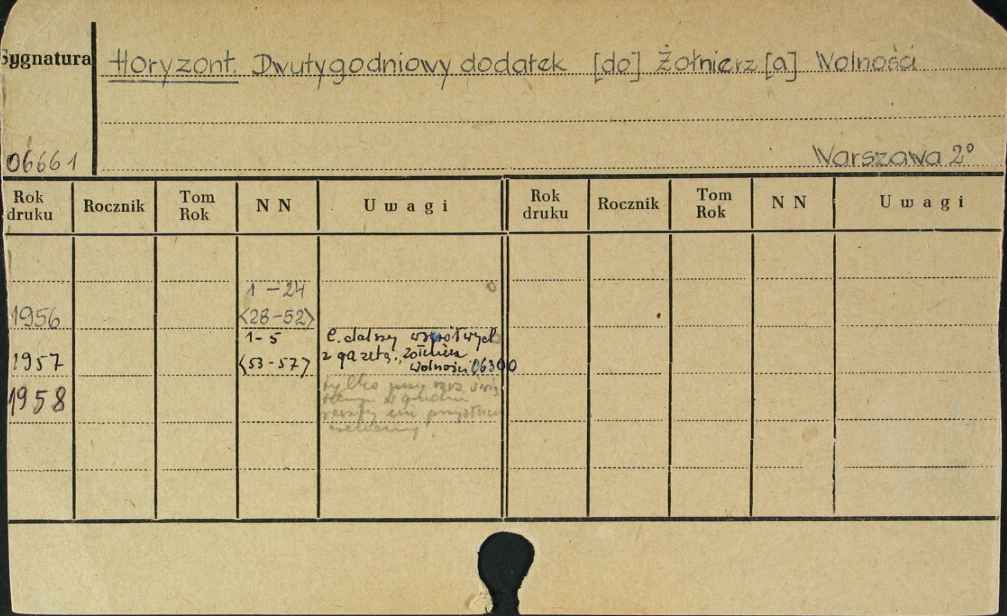 Sygnatura
Horyzont. Dwutygodniowy dodatek [do] Żołnierz[a] Wolności
06661
Warszawa 2°
Rok druku Rocznik Tom Rok NN Uwagi Rok druku Rocznik Tom Rok NN Uwagi
1 – 24
1956 <28-52>
1-5 C. dalszy
1957 <53-57> z gazetą "Żołnierz
Wolności 06300
1958 tylko